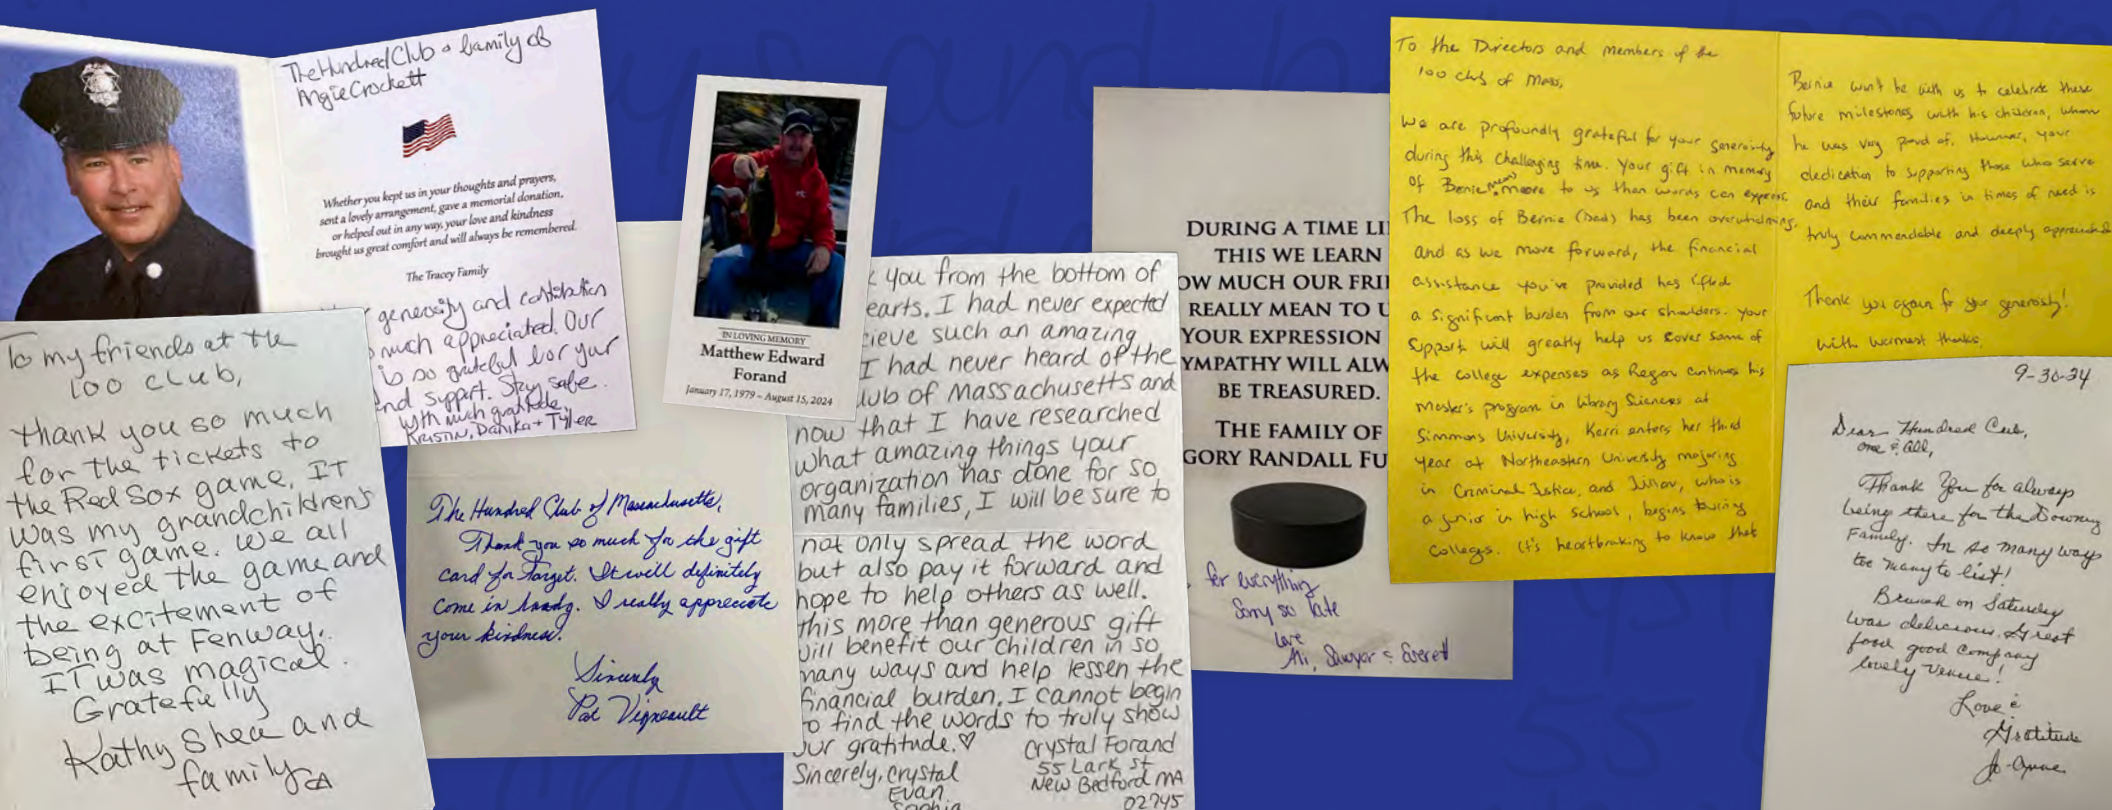 The Hundred Club & family of
Angie Crockett
Whether you kept us in your thoughts and prayers,
sent a lovely arrangement, gave a memorial donation,
or helped out in any way, your love and kindness
brought us great comfort and will always be remembered.
The Tracey Family
generosity and contribution
much appreciated. Our
is so grateful for your
and support. Stay safe.
With much gratitude,
Kristin, Danika + Tyler
To my friends at the
100 club,
Thank you so much
for the tickets to
the Red Sox game. It
was my grandchildren's
first game. We all
enjoyed the game and
the excitement of
being at Fenway.
IT was magical.
Gratefully
Kathy Shea and
family
The Hundred Club of Massachusetts,
Thank you so much for the gift
card for Target. It will definitely
come in handy. I really appreciate
your kindness.
Sincerely
Pat Vigneault
IN LOVING MEMORY
Matthew Edward
Forand
January 17, 1979 – August 15, 2024
k you from the bottom of
earts. I had never expected
ieve such an amazing
I had never heard of the
lub of Massachusetts and
now that I have researched
what amazing things your
organization has done for so
many families, I will be sure to
not only spread the word
but also pay it forward and
hope to help others as well.
This more than generous gift
will benefit our children in so
many ways and help lessen the
financial burden. I cannot begin
to find the words to truly show
our gratitude.♡
Sincerely, Crystal
Evan
Sophia
Crystal Forand
55 Lark St
New Bedford MA
02745
DURING A TIME LI
THIS WE LEARN
OW MUCH OUR FRI
REALLY MEAN TO U
YOUR EXPRESSION
YMPATHY WILL ALW
BE TREASURED.
THE FAMILY OF
GORY RANDALL FU
for everything
Sorry so late
Love
Ali, Sawyer & Everett
To the Directors and members of the
100 club of Mass,
We are profoundly grateful for your generosity
during this challenging time. Your gift in memory
of Bernie means more to us than words can express.
The loss of Bernie (Dad) has been overwhelming,
and as we move forward, the financial
assistance you've provided has lifted
a significant burden from our shoulders. Your
support will greatly help us cover some of
the college expenses as Regan continues his
Master's program in Library Sciences at
Simmons University, Kerri enters her third
year at Northeastern University majoring
in Criminal Justice, and Jillian, who is
a junior in high school, begins touring
colleges. It's heartbreaking to know that
Bernie won't be with us to celebrate these
future milestones with his children, whom
he was very proud of. However, your
dedication to supporting those who serve
and their families in times of need is
truly commendable and deeply appreciated
Thank you again for your generosity!
With warmest thanks,
9-30-24
Dear Hundred Club,
one & all,
Thank You for always
being there for the Downey
Family. In so many ways
too many to list!
Brunch on Saturday
was delicious. Great
food good company
lovely Venue!
Love &
Gratitude
Jo-Anne